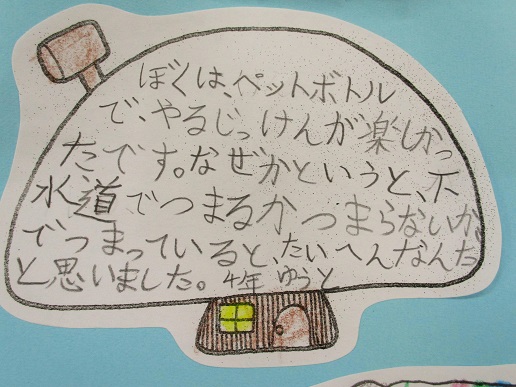 ぼくは、ペットボトル
で、やるじっけんが楽しかっ
たです。なぜかというと、下
水道でつまるかつまらないか、
でつまっていると、たいへんなんだ
と思いました。4年 ゆうと